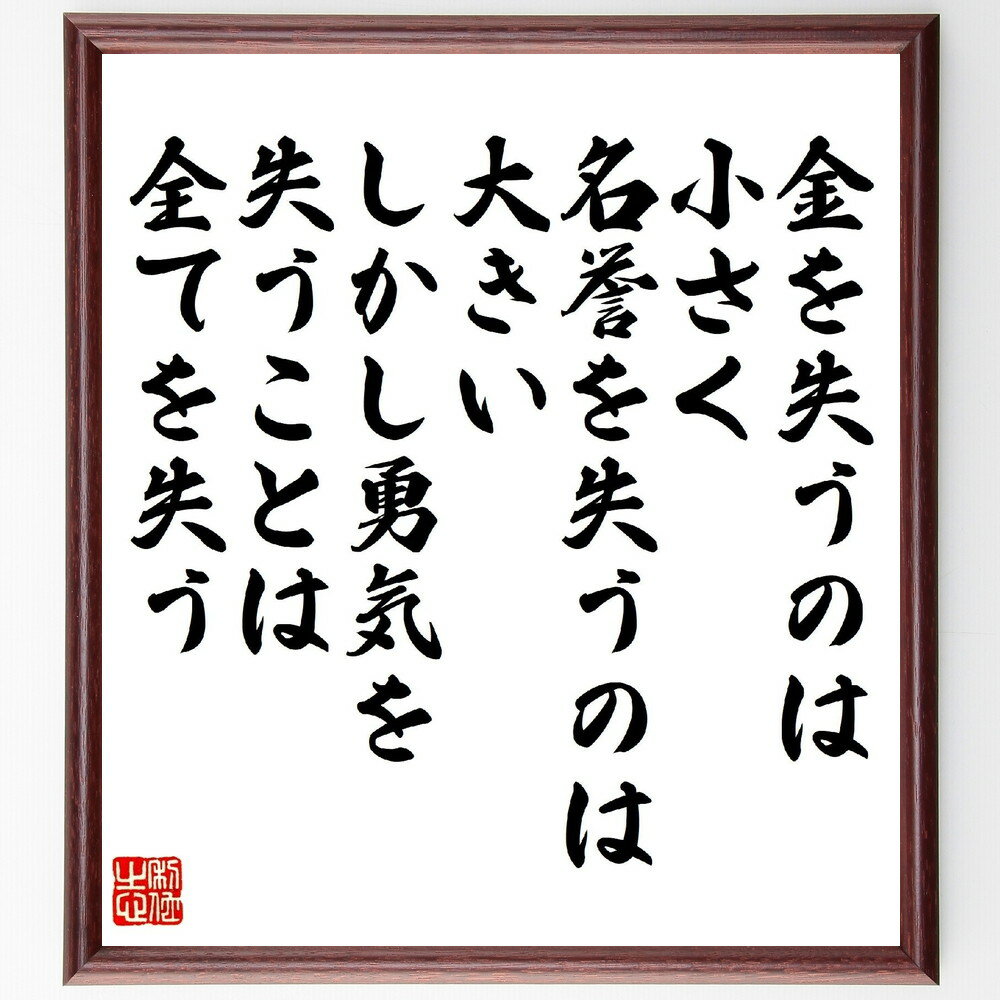 金を失うのは
小さく
名誉を失うのは
大きい
しかし勇気を
失うことは
全てを失う